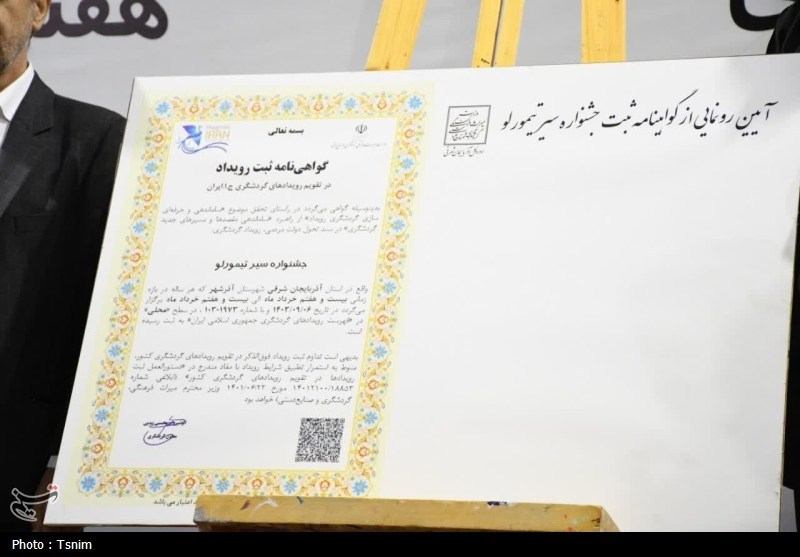 هفت
آیین رونمایی از گواهینامه ثبت جشنواره سیر تیمورلو
بسمه تعالی
IRAN
گواهی‌نامه ثبت رویداد
در تقویم رویدادهای گردشگری ج.ا.ایران
بدینوسیله گواهی می‌گردد در راستای تحقق موضوع «ساماندهی و حرفه‌ای
سازی گردشگری رویداد» از راهبرد «ساماندهی مقصدها و مسیرهای جدید
گردشگری» در سند تحول دولت مردمی، رویداد گردشگری:
جشنواره سیر تیمورلو
واقع در استان آذربایجان شرقی شهرستان آذرشهر که هر ساله در بازه
زمانی بیست و هفتم خرداد ماه الی بیست و هفتم خرداد ماه برگزار
می‌گردد در تاریخ ۱۴۰۳/۰۹/۰۶ و با شماره ۱۰۳۰۱۹۷۳ ، در سطح «محلی»
در «فهرست رویدادهای گردشگری جمهوری اسلامی ایران» به ثبت رسیده
است.
بدیهی است تداوم ثبت رویداد فوق‌الذکر در تقویم رویدادهای گردشگری کشور،
منوط به استمرار تطبیق شرایط رویداد با مفاد مندرج در «دستورالعمل ثبت
رویدادها در تقویم رویدادهای گردشگری کشور» (ابلاغی شماره
۱۴۰۱۲۱۰۰/۱۸۸۵۳ مورخ ۱۴۰۱/۰۶/۲۲ وزیر محترم میراث فرهنگی،
گردشگری و صنایع‌دستی) خواهد بود.
اعتبار می باشد
تسنیم
Photo : Tsnim